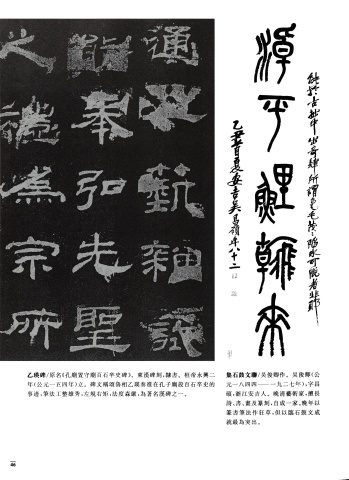 通壹蓺雜試
能奉弘先聖
之禮為宗所
純於古拙中出奇肆所謂
淖平
乙丑首夏安吉吳昌碩年八十二
乙瑛碑/原名《孔廟置守廟百石卒史碑》。東漢碑刻；隸書。桓帝永興二
年（公元一五四年）立。碑文稱頌魯相乙瑛奏准在孔子廟設百石卒史的
事迹；筆法工整雄秀，左規右矩，法度森嚴，為著名漢碑之一。
集石鼓文聯/吳俊卿作。吳俊卿（公
元一八四四——一九二七年），字昌
碩；浙江安吉人。晚清藝術家，擅長
詩、書、畫及篆刻，自成一家。晚年以
篆書筆法作狂草，但以臨石鼓文成
就最為突出。
46